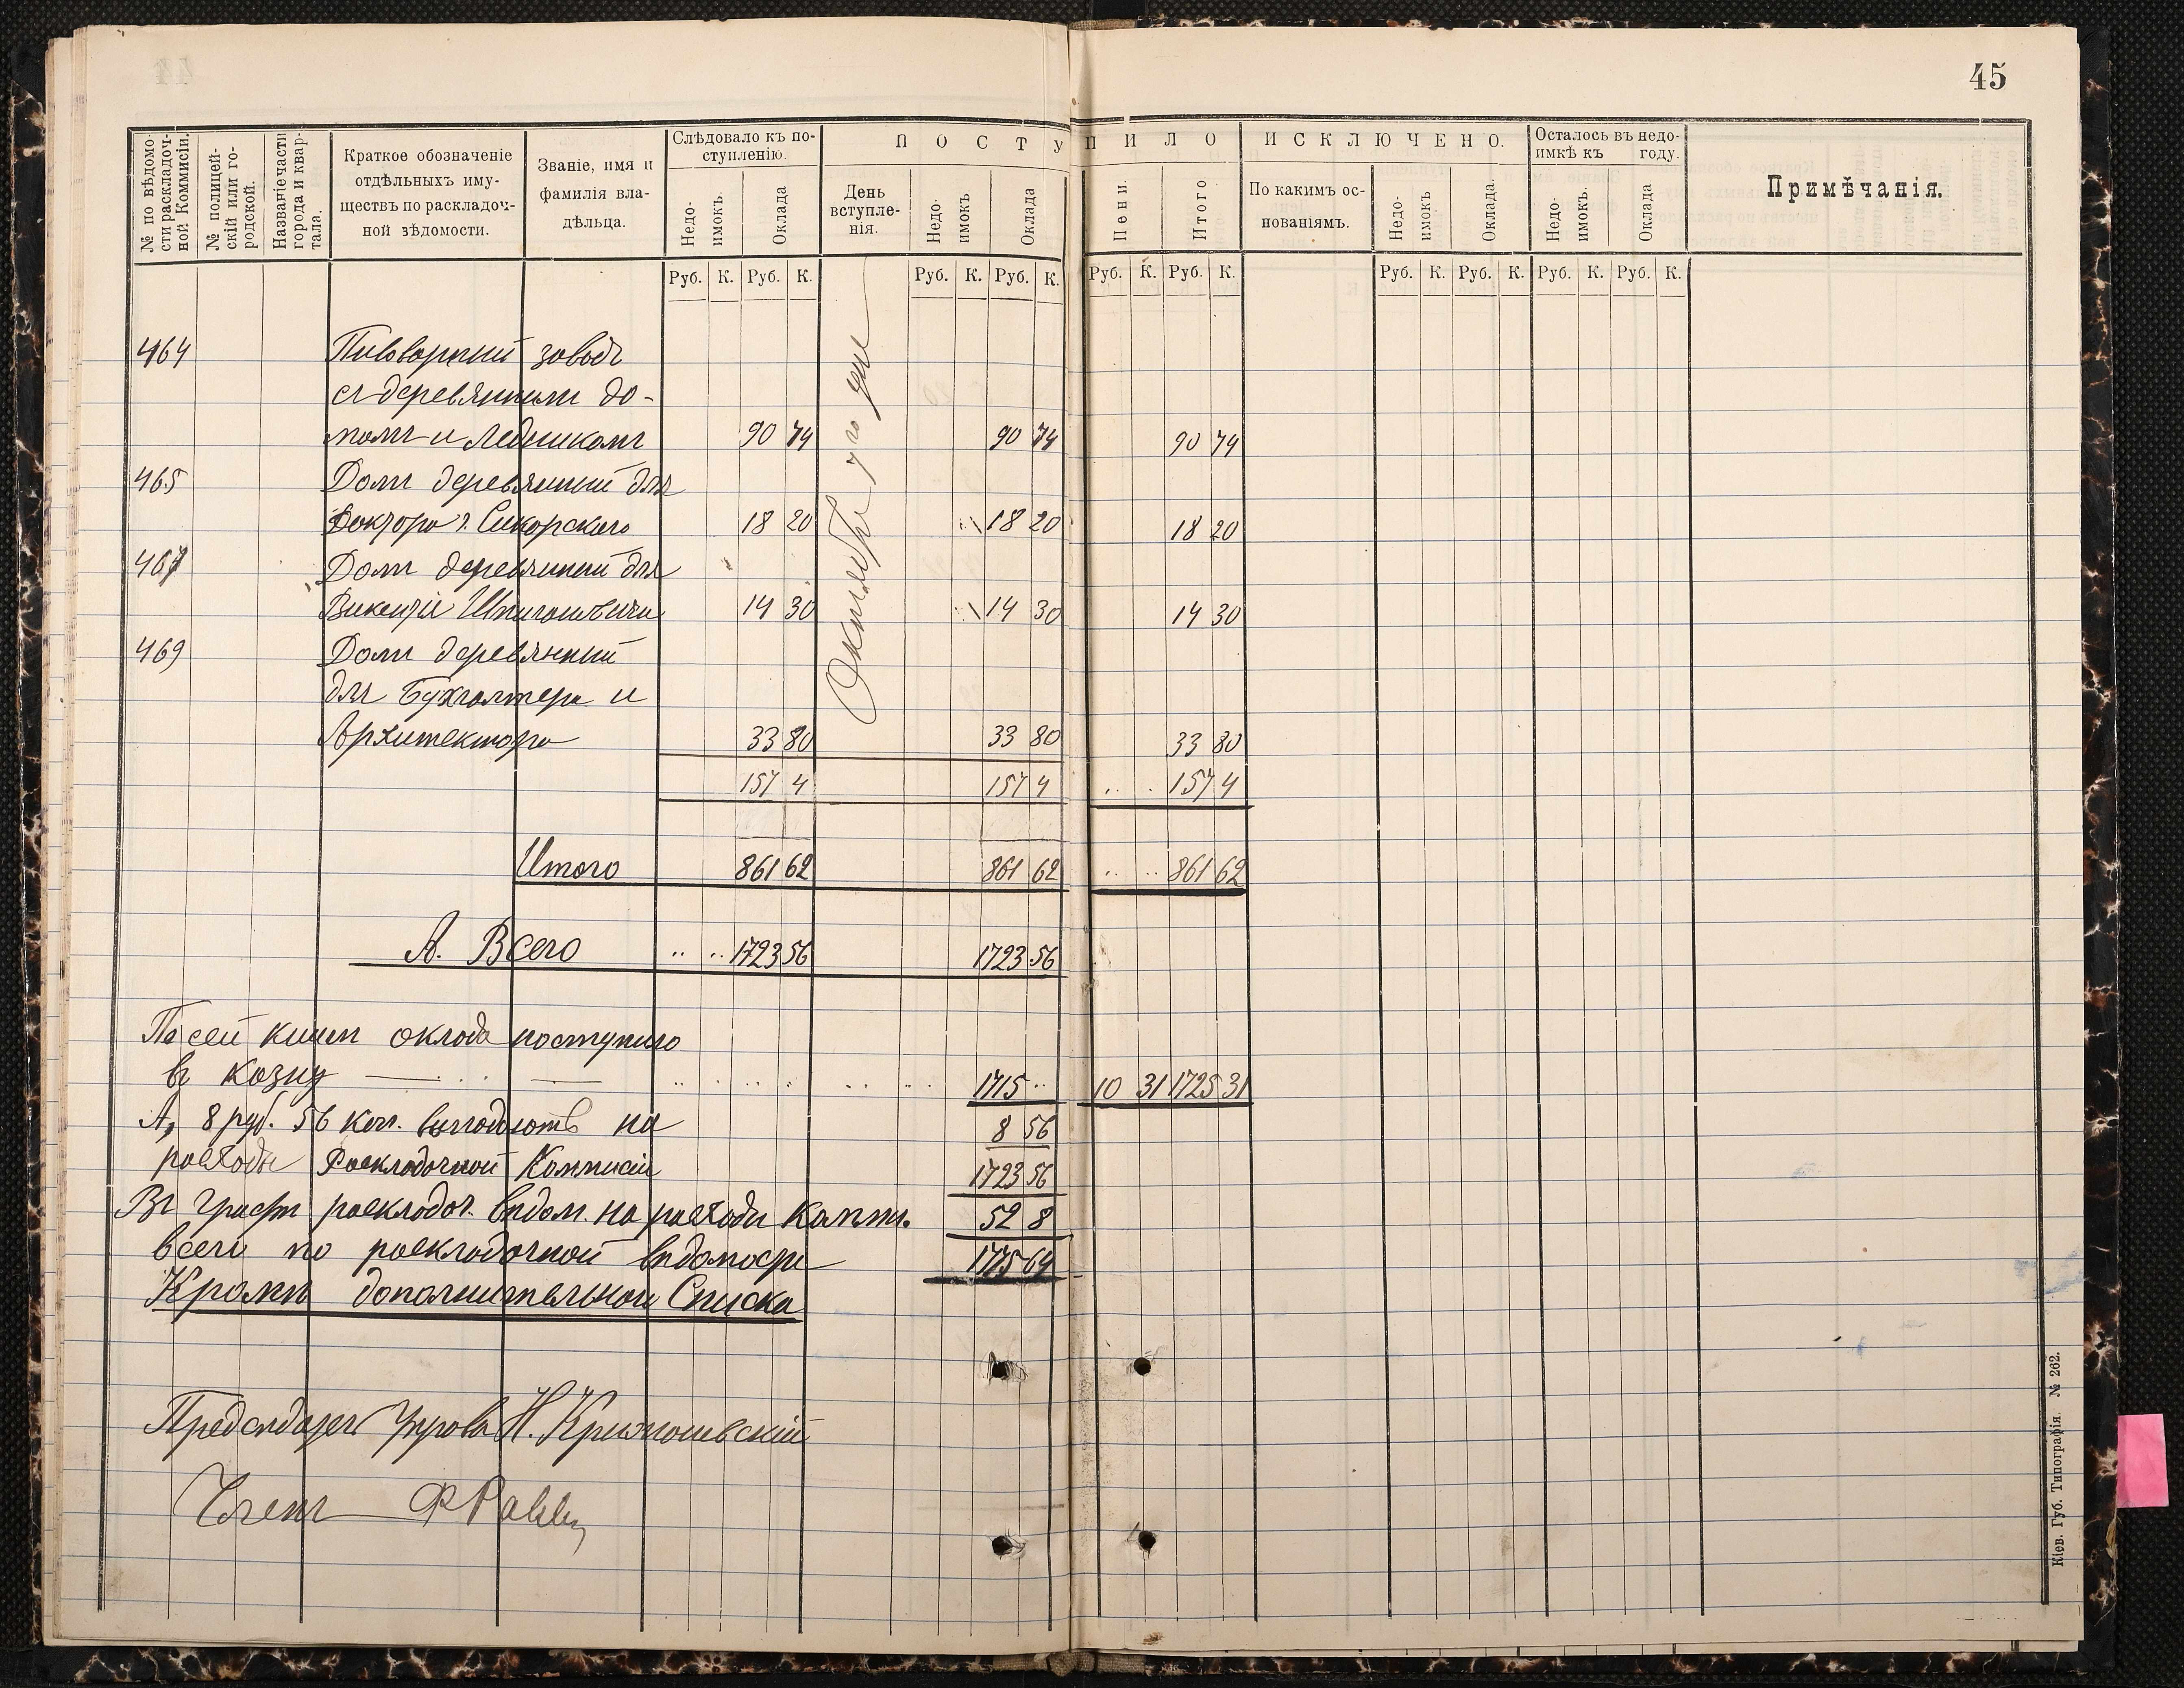 45
№ по вѣдомо-
сти раскладоч-
ной Коммисіи.
№ полицей-
скій или го-
родской.
Названіе части
города и квар-
тала.
Краткое обозначеніе
отдѣльныхъ иму-
ществъ по раскладоч-
ной вѣдомости.
Званіе, имя и
фамилія вла-
дѣльца.
Слѣдовало къ по-
ступленію.
Недо-
имокъ.
Оклада
ПОСТУПИЛО
День
вступле-
нія.
Недо-
имокъ
Оклада
Пени.
Итого
ИСКЛЮЧЕНО.
По какимъ ос-
нованіямъ.
Недо-
имокъ
Оклада.
Осталось въ недо-
имкѣ къ году.
Недо-
имокъ.
Оклада
Примѣчанія.
Руб. К. Руб. К. Руб. К. Руб. К. Руб. К. Руб. К. Руб. К. Руб. К. Руб. К. Руб. К.
464 Пивоварный заводъ
съ деревяннымъ до-
момъ и Ледникомъ 90 74 90 74 90 74
465 Домъ деревянный для
Доктора г. Сикорского 18 20 18 20 18 20
467 Домъ деревянный для
Викентія 14 30 14 30 14 30
469 Домъ деревянный
для Бухгалтера и
Архитектора 33 80 33 80 33 80
Октября 7го дня
157 4 157 4 157 4
Итого 861 62 861 62 861 62
А. Всего 1723 56 1723 56
По сей книгѣ оклада поступило
въ казну 1715 10 31 1725 31
А, 8 руб. 56 коп. на 8 56
расходы Раскладочной Коммисіи 1723 56
Въ графѣ раскладоч. вѣдом. на расходы Комми. 52 8
всего по раскладочной вѣдомости 1775 64
Кромѣ дополнительнаго Списка
Предсѣдатель Управы Н.
Членъ
Кіев. Губ. Типографія. № 262.